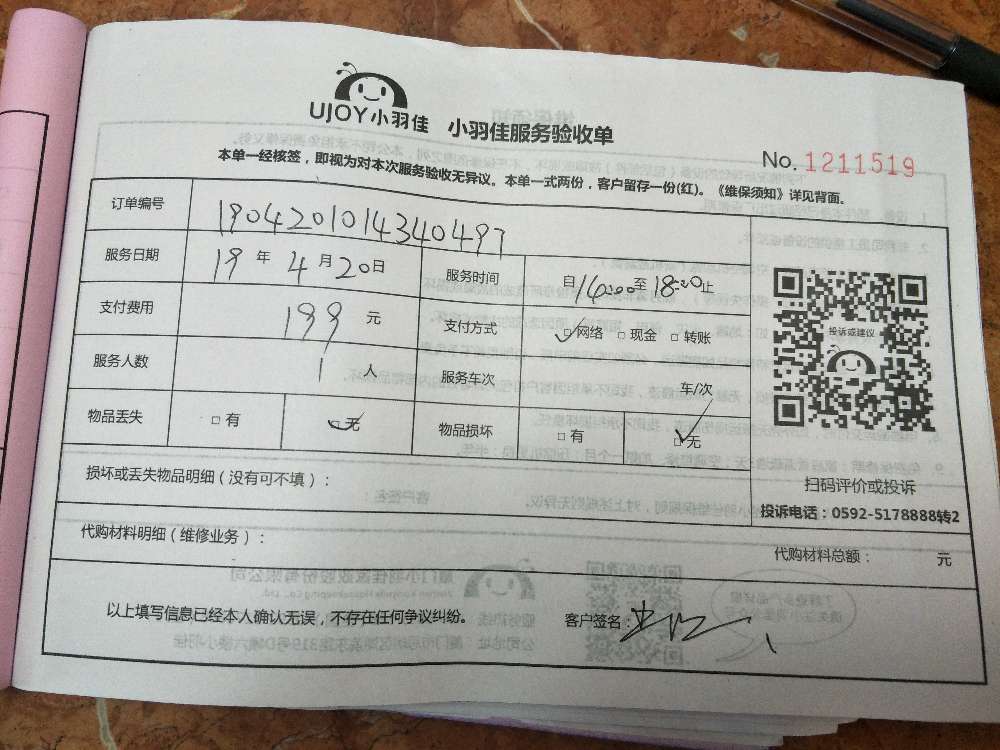 UJOY小羽佳 小羽佳服务验收单
No. 1211519
本单一经核签，即视为对本次服务验收无异议。本单一式两份，客户留存一份(红)。《维保须知》详见背面。
订单编号 1904201014340497
服务日期 19 年 4 月 20 日 服务时间 自 16:00 至 18:00 止
支付费用 199 元 支付方式 ☑网络 □现金 □转账
服务人数 1 人 服务车次 车/次
物品丢失 □有 ☑无 物品损坏 □有 ☑无
投诉或建议
扫码评价或投诉
投诉电话：0592-5178888转2
损坏或丢失物品明细（没有可不填）：
代购材料明细（维修业务）：
代购材料总额： 元
以上填写信息已经本人确认无误，不存在任何争议纠纷。 客户签名：